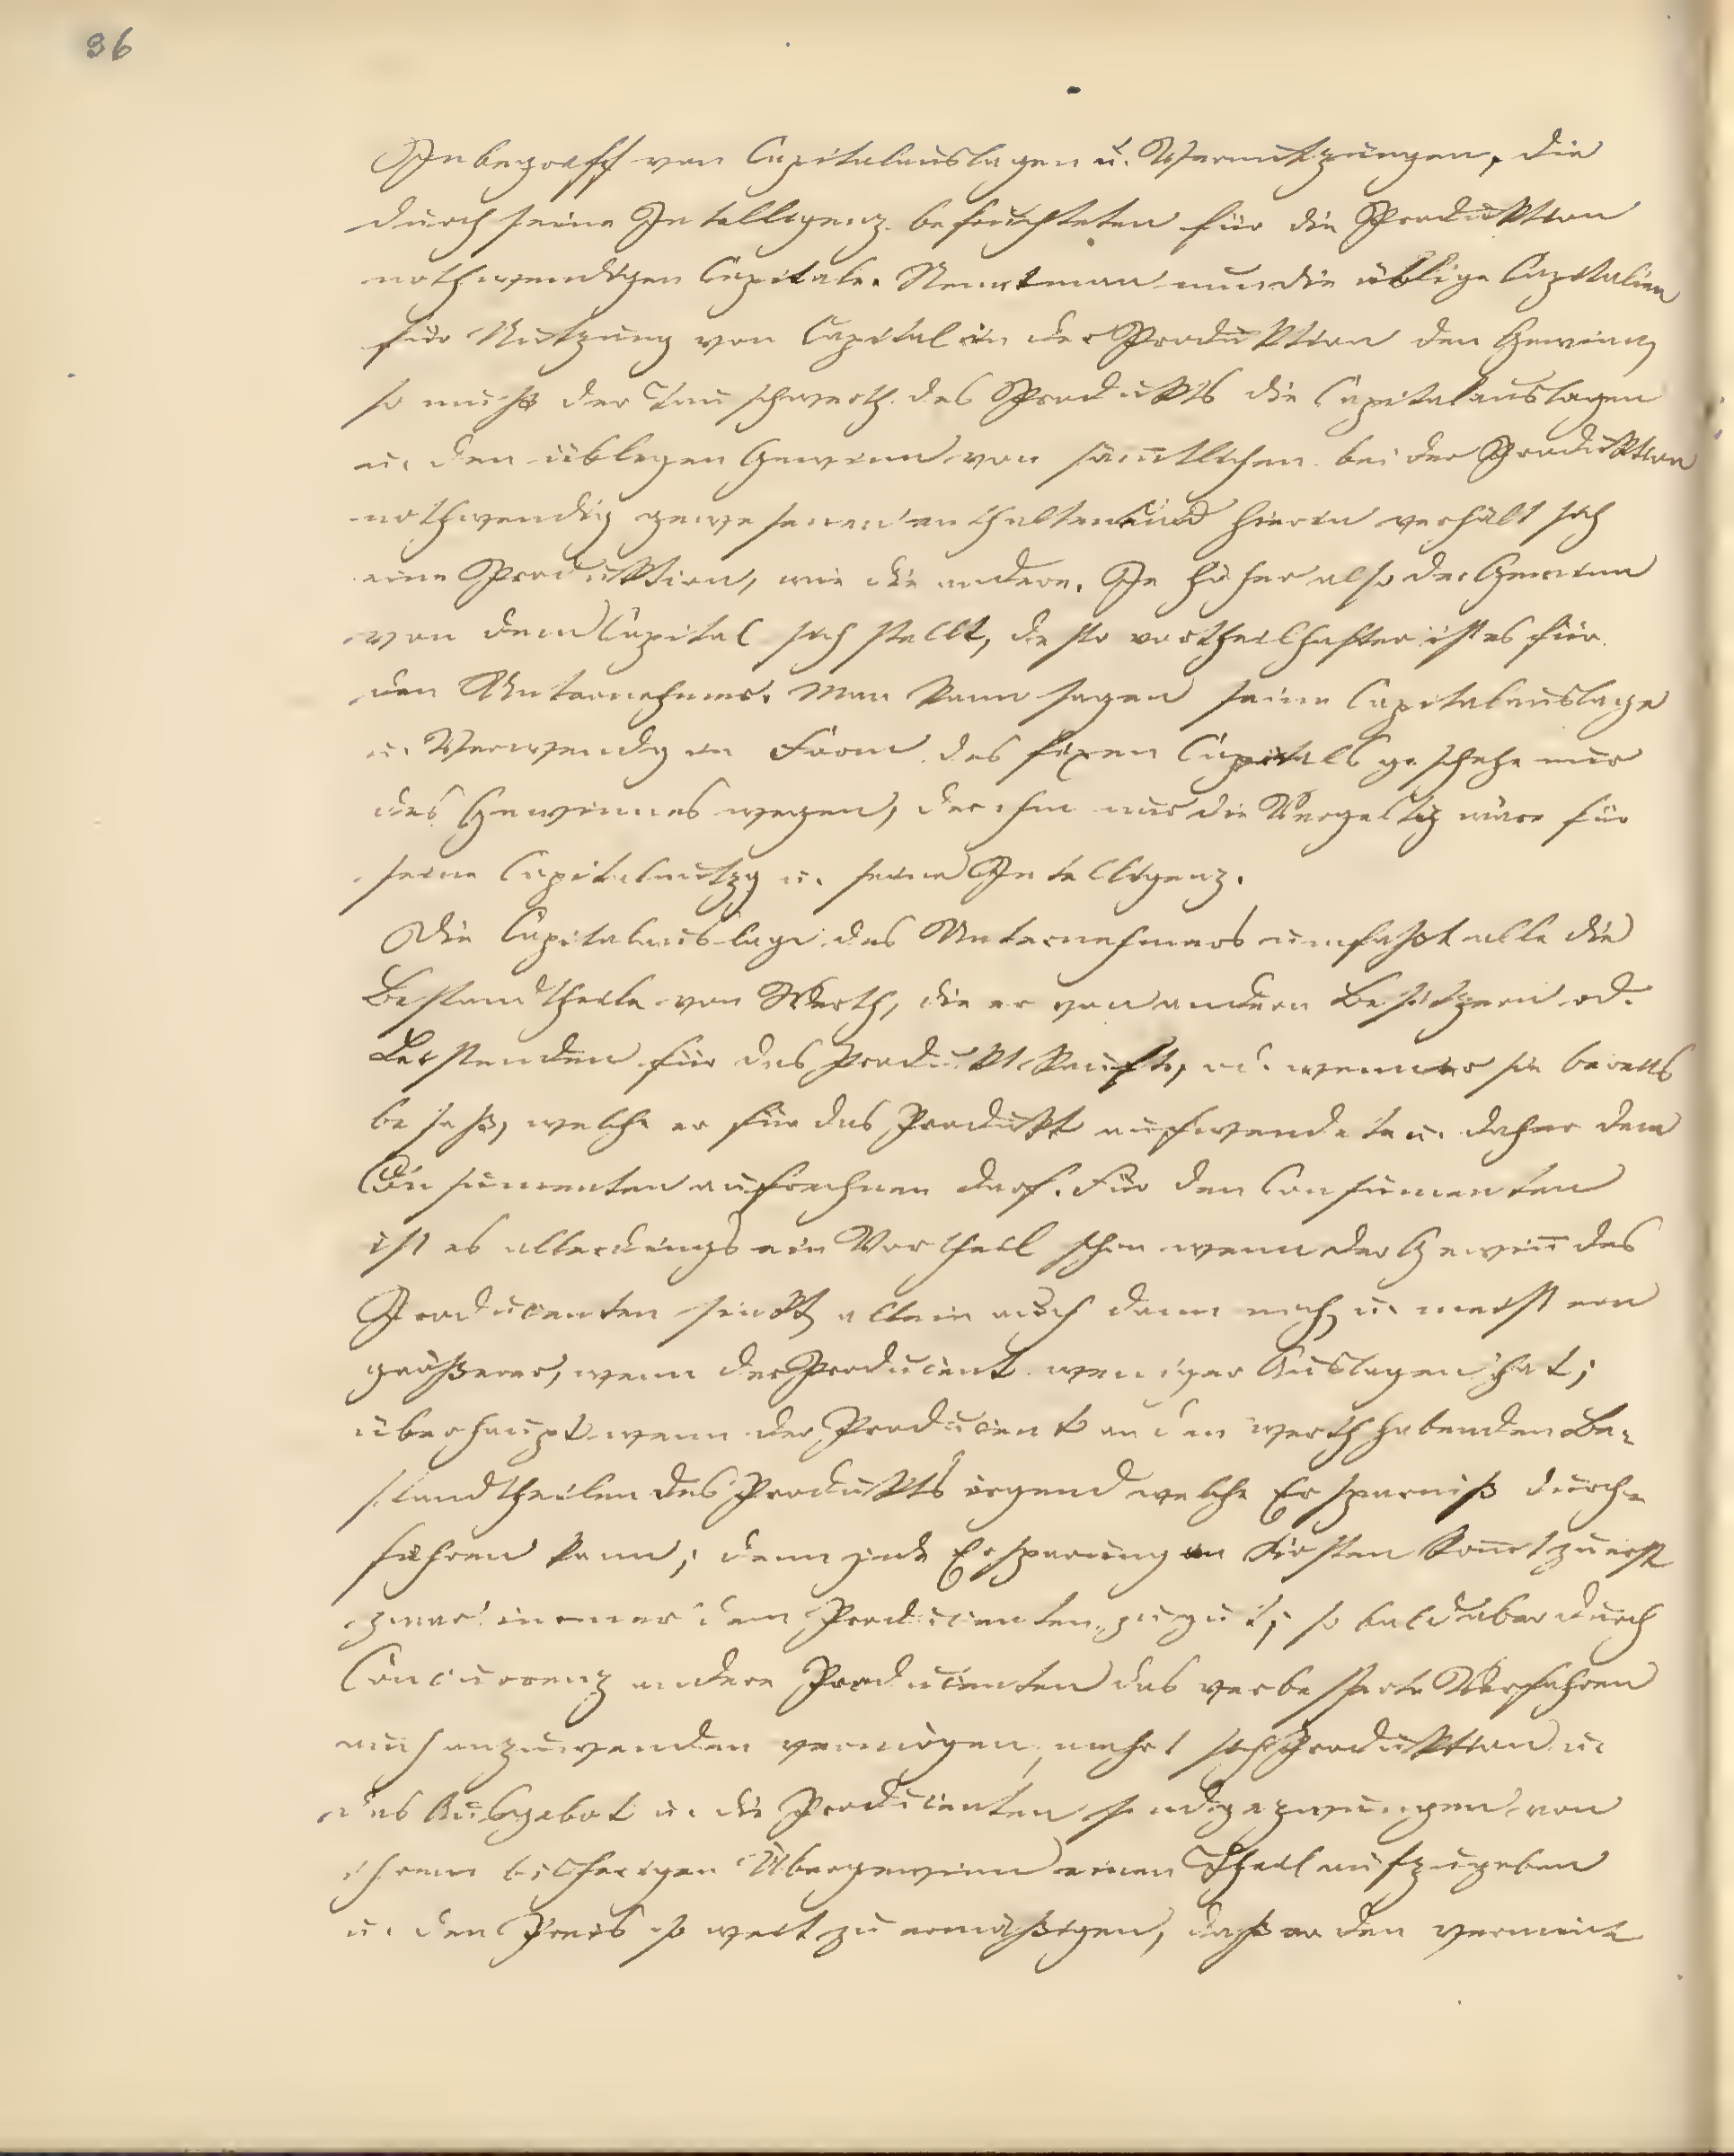 36
Inbegriff von Capitalauslagen u. Vernutzungen, die
durch seine Intelligenz befruchteten für die Produktion
nothwendigen Capitale. Nennt man nun die übliche
für Nutzung von Capital in der Produktion den Gewinn,
so muß der Tauschwerth des Produkts die Capitalauslagen
u. den üblichen Gewinn von sämtlichen bei der Produktion
nothwendig gewesenen enthalten und hierin verhält sich
eine Produktion, wie die andere. Je höher also der Gewinn
von dem Capital sich stellt, desto vortheilhafter ist es für
den Unternehmer. Man kann sagen seine Capitalauslage
u. Verwendg in Form des fixen Capitals geschehe nur
des Gewinnes wegen, der ihm nur die Vergeltg wäre für
seine Capitalnutzg u. seine Intelligenz.
Die Capitalauslage des Unternehmers umfaßt alle die
Bestandtheile von Werth, die er von andern Besitzern od.
Leistenden für das Produkt kaufte, od. wenn er sie bereits
besaß, welche er für das Produkt aufwendete u. daher dem
Consumenten aufrechnen darf. Für den Consumenten
ist es allerdings ein Vortheil schon wenn der Gewin̅ des
Producenten sinkt, allein auch dann noch u. meist ein
größerer, wenn der Producent weniger Auslagen hat;
überhaupt wenn der Producent an den werthhabenden Be-
standtheilen des Produkts irgend welche Ersparniß durch-
führen kann; denn jede Ersparung an Kosten kom̅t zuerst
zwar immer dem Producenten zugut; sobald aber durch
Concurrenz andere Producenten das verbesserte Verfahren
auch anzuwenden vermögen, mehrt sich Produktion u.
das Ausgebot u. die Producenten sind gezwungen von
ihrem bisherigen Übergewinn einen Theil aufzugeben
u. den Preis so weit zu ermäßigen, daß er den